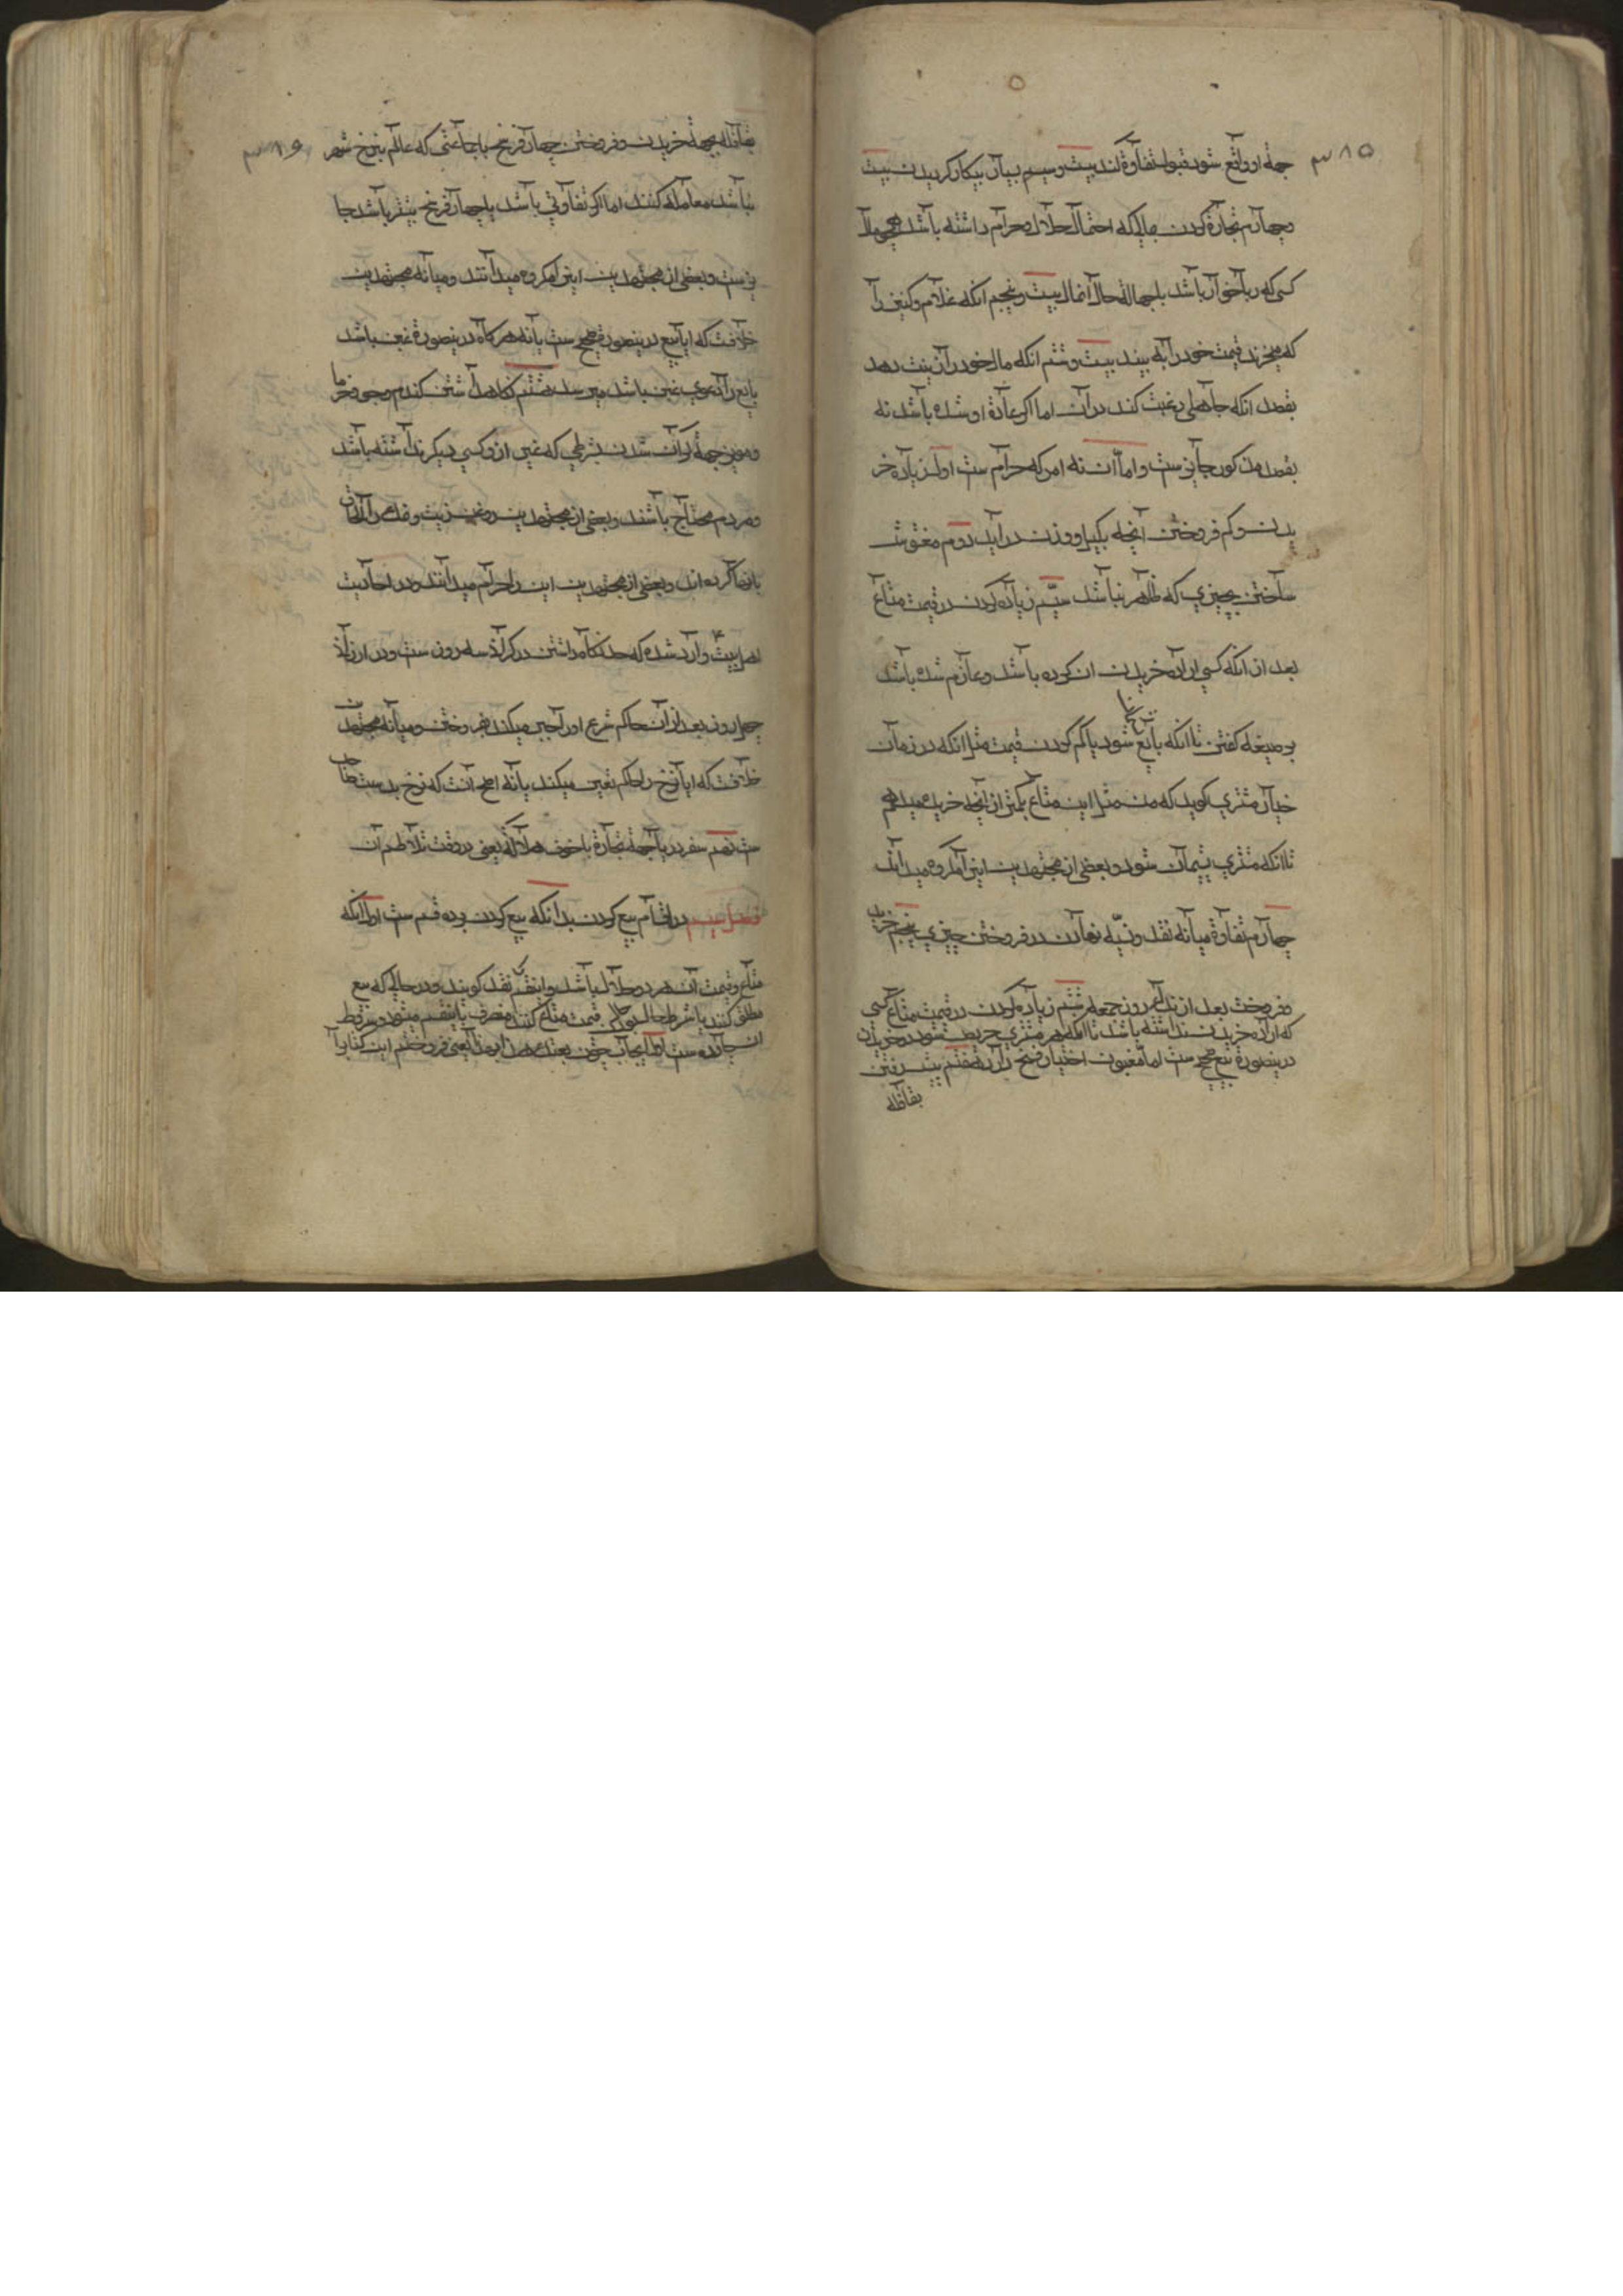 ۳۸۵
جهة او واقع شود قبول تفاوة کند بیست وسیم بسیار بیکار کردیدن بیست
وچهارم تجارة کردن بمالی که احتمال حلال وحرام داشته باشد همچو مال
کسی که رباخوار باشد با جهالة حال انمال بیست وپنجم انکه غلام وکنیز را
که میخرند قیمت خود را به بیند بیست وششم انکه مال خود را زینت دهد
بقصد انکه جاهلی رغبت کند در آن اما اکر عادة او شده باشد نه
بقصد مذکور جایز ست واما ان نه امر که حرام ست اول زیاده خر
یدن وکم فروختن آنچه بکیل ووزن در آید دوم مغشوش
ساختن بچیزی که ظاهر نباشد سیّم زیاده کردن در قیمت متاع
بعد از انکه کسی اراده خریدن ان کرده باشد وعازم شده باشد
بر صیغه کفتن تا انکه بایع پشیمان شود یا کم کردن قیمت مثلا انکه در زمان
خیار مشتری کوید که من مثل این متاع بکمتر از آنچه خریده میدهم
تا انکه مشتری پشیمان شود وبعضی از مجتهدین این را مکروه میدانند
چهارم تفاوة میانه نقد ونسیه نهادن در فروختن چیزی پنجم خرید
وفروخت بعد از ندای روز جمعه ششم زیاده کردن در قیمت متاع کسی
که اراده خریدن نداشته باشد تا انکه هر مشتری حریص شود در خریدن
درینصورة بیع صحیح ست اما مغبون اختیار فسخ دارد هفتم پیش رفتن
بقافله
۳۸۶
بقافله بجهة خریدن وفروختن چهار فرسخ با جماعتی که عالم بنرخ شهر
نباشند معامله کنند اما اکر تفاوتی باشد یا چهار فرسخ بیشتر باشد جا
یز ست وبعضی از مجتهدین این را مکروه میدانند ومیانه مجتهدین
خلافست که ایا بیع درینصورة صحیح ست یا نه هر کاه درینصورة غبن باشد
بایع را دعوی غبن باشد میرسد هشتم نکاهداشتن کندم وجو وخرما
ومویز جهة کران شدن بشرطی که غیر از و کسی دیکر نداشته باشد
ومردم محتاج باشند وبعضی از مجتهدین روغن زیت ونمک را الحاق
بانها کرده اند وبعضی از مجتهدین این را حرام میدانند ودر احادیث
اهل بیت ع وارد شده که حد نکاه داشتن در کرانی سه روز ست ودر ارزانی
چهل روز بعد از آن حاکم شرع او را جبر میکند بفروختن ومیانه مجتهدین
خلافست که ایا نرخ را حاکم تعیین میکند یا نه اصح آنست که نرخ بدست صاحب
ست نهم سفر دریا جهة تجارة با خوف هلاکه یعنی در وقت تلاطم آن
فصل سیم در اقسام بیع کردن بدانکه بیع کردن بر ده قسم ست اول انکه
متاع وقیمت آن هر دو حلال باشد واینقسم را نقد کویند ودر حالی که بیع
مطلق کنند یا شرط حال بودن قیمت متاع کنند منصرف باینقسم میشود وشروط
ان چهارده ست اول ایجاب چون بعتک هذا بهذا یعنی فروختم این کتاب را